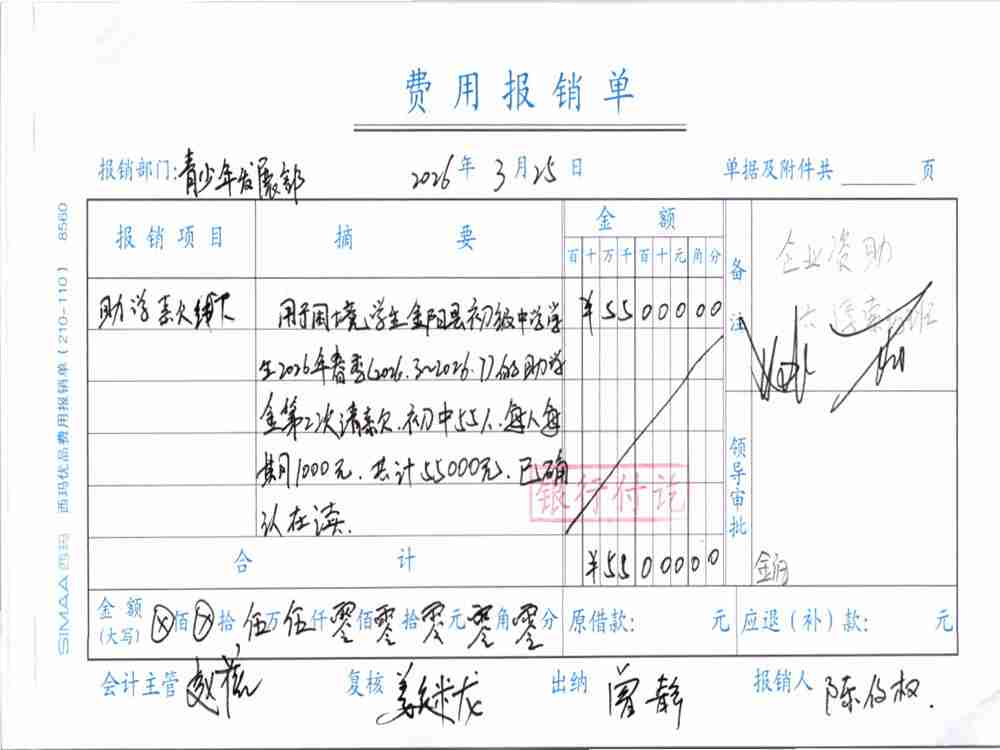 费用报销单
报销部门:青少年发展部 2026年3月25日 单据及附件共 页
报销项目 摘要 金额 备注
百十万千百十元角分
企业资助
助学系火铺下 用于困境学生金阳县初级中学学 ¥5500000
生2026年春季(2026.3~2026.7)的助学
金第2次请款.初中55人.每人每
期1000元.共计55000元.已确
认在读.
银行付讫
领导审批
合计 ¥5500000
金额(大写) ⊗佰⊗拾伍万伍仟零佰零拾零元零角零分 原借款: 元 应退(补)款: 元
会计主管 复核 出纳 曾静 报销人
SIMAA西玛 西玛优品费用报销单(210-110) 8560